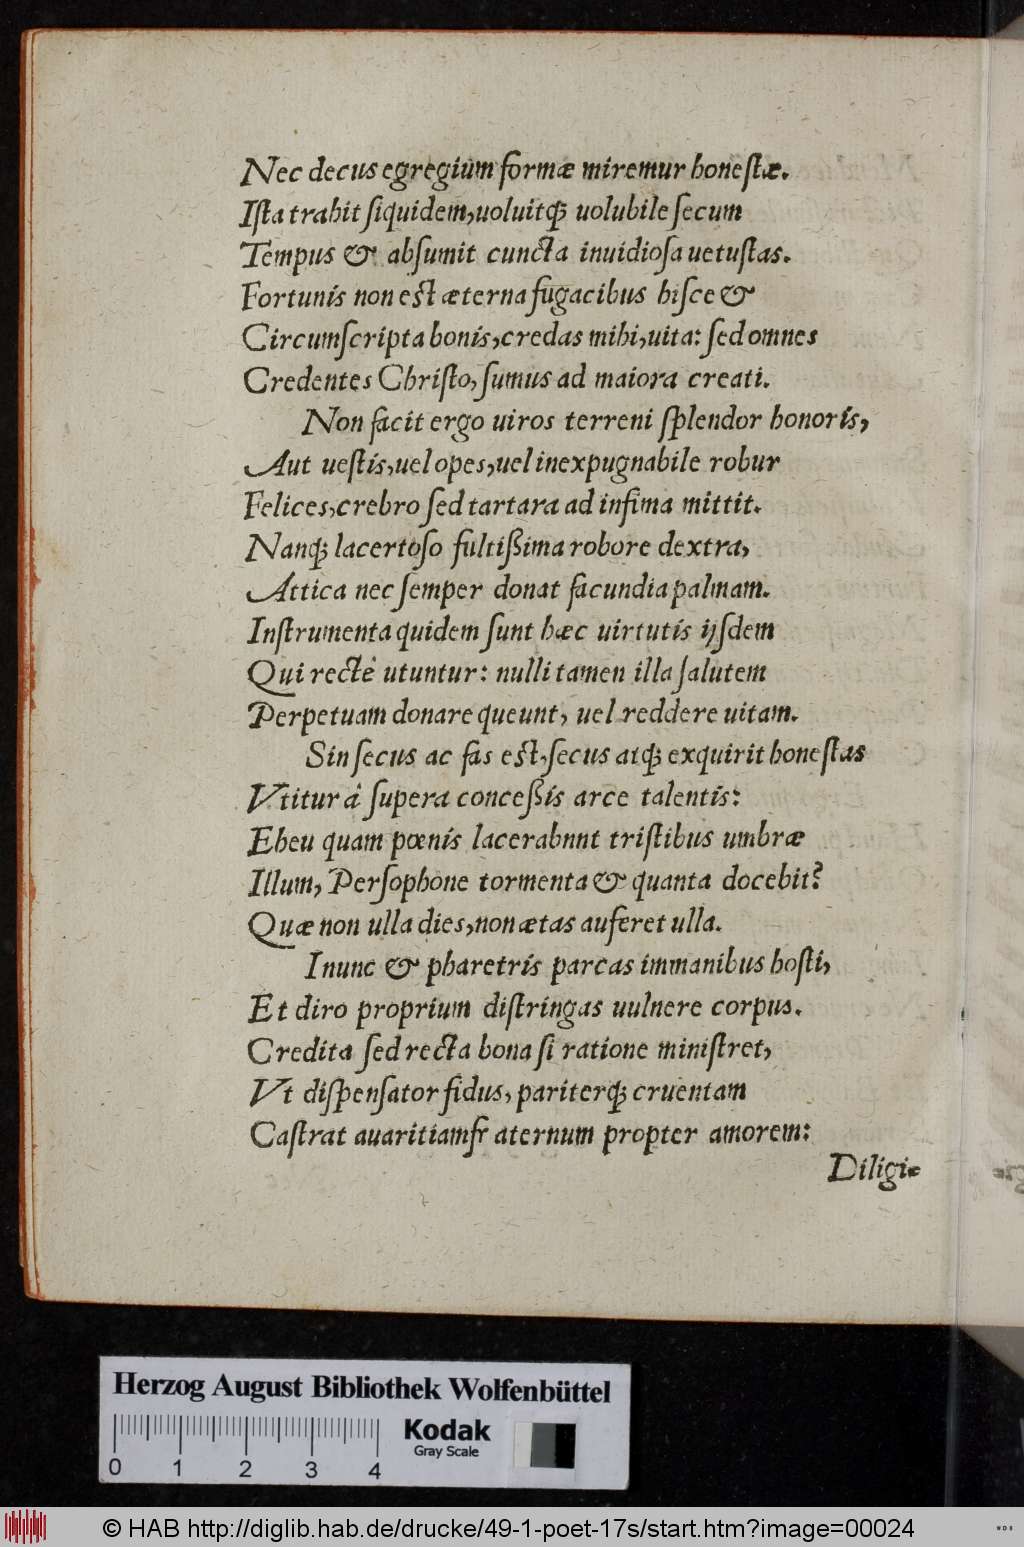 Nec decus egregium formæ miremur honeſtæ.
Iſta trahit ſiquidem, uoluitq́; uolubile ſecum
Tempus & abſumit cuncta inuidioſa uetuſtas.
Fortunis non eſt æterna fugacibus hiſce &
Circumſcripta bonis, credas mihi, uita: ſed omnes
Credentes Chriſto, ſumus ad maiora creati.
Non facit ergo uiros terreni ſplendor honoris,
Aut ueſtis, uel opes, uel inexpugnabile robur
Felices, crebro ſed tartara ad infima mittit.
Nanq́; lacertoſo fultißima robore dextra,
Attica nec ſemper donat facundia palmam.
Inſtrumenta quidem ſunt hæc uirtutis ijſdem
Qui rectè utuntur: nulli tamen illa ſalutem
Perpetuam donare queunt, uel reddere uitam.
Sin ſecus ac fas eſt, ſecus atq́; exquirit honeſtas
Vtitur à ſupera conceßis arce talentis:
Eheu quam pœnis lacerabnnt triſtibus umbræ
Illum, Perſophone tormenta & quanta docebit?
Quæ non ulla dies, non ætas auferet ulla.
I nunc & pharetris parcas immanibus hoſti,
Et diro proprium diſtringas uulnere corpus.
Credita ſed recta bona ſi ratione miniſtret,
Vt diſpenſator fidus, pariterq́; cruentam
Caſtrat auaritiamfr aternum propter amorem:
Diligi⸗
Herzog August Bibliothek Wolfenbüttel
Kodak
Gray Scale
0 1 2 3 4
© HAB http://diglib.hab.de/drucke/49-1-poet-17s/start.htm?image=00024